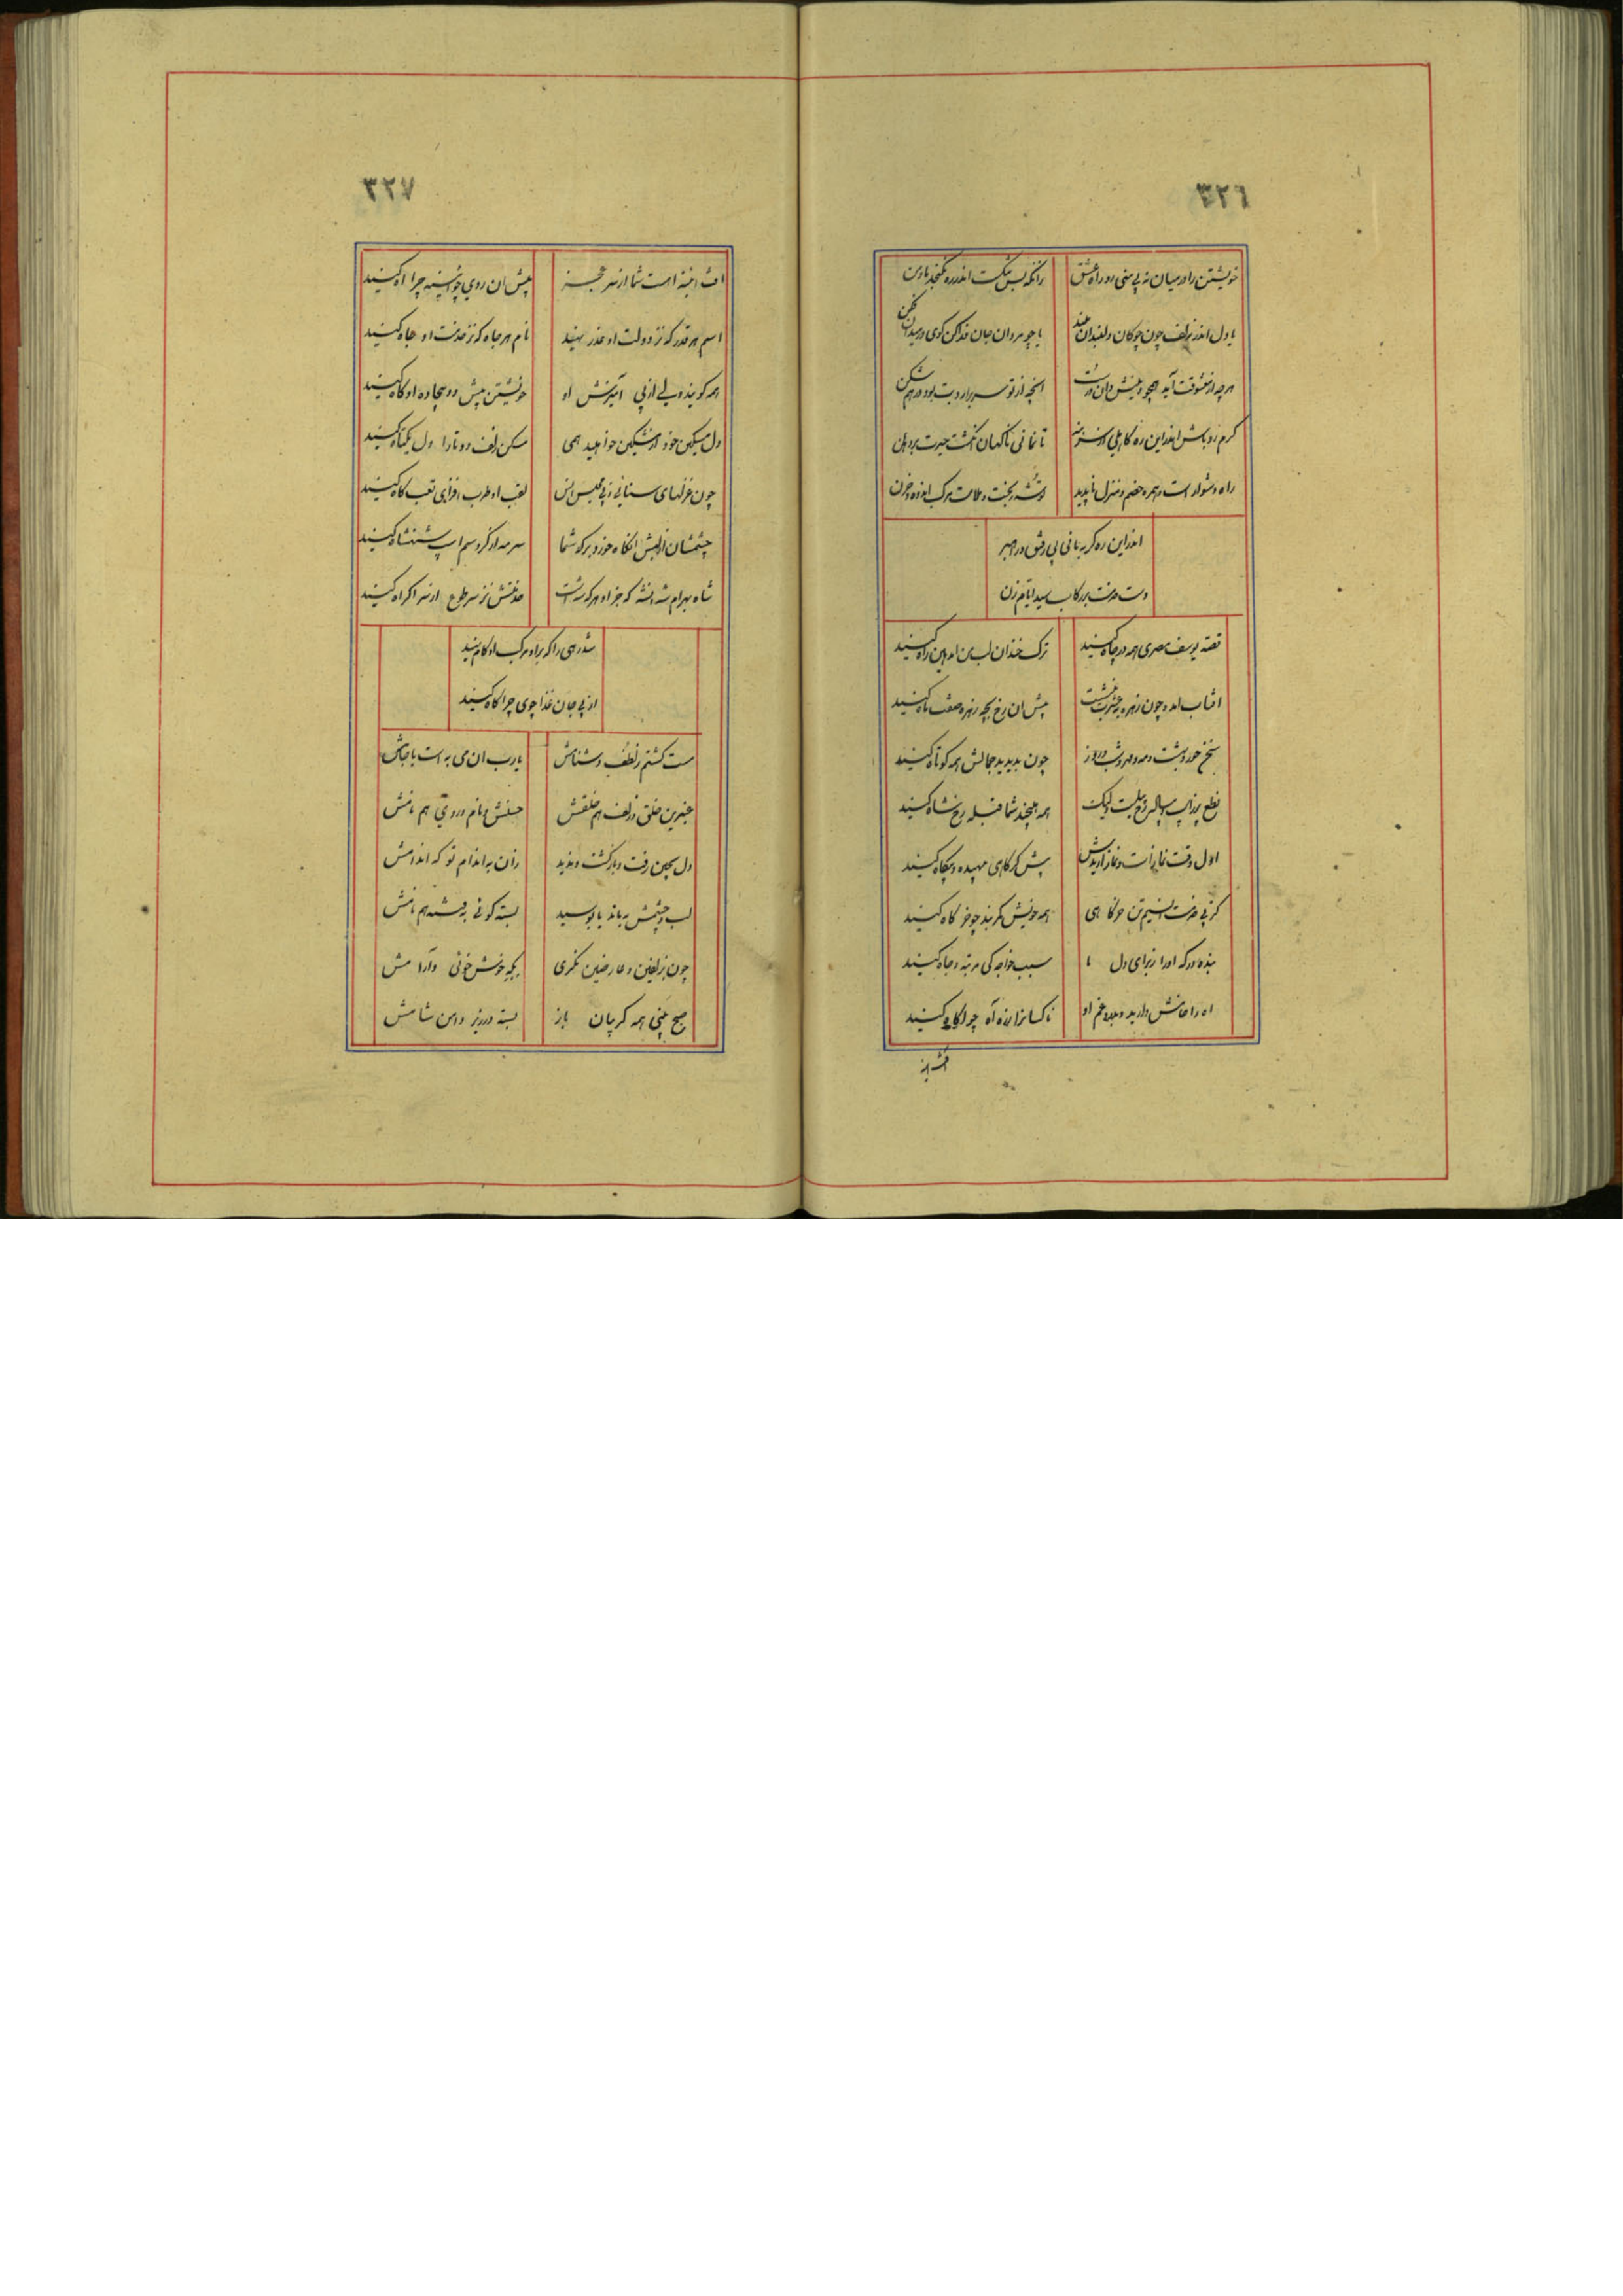 ٣٢٦
خویشتن را در میان نه بی منی در راه عشق
زانکه بس تنگست اندر ره نگنجد ما و من
یا دل اندر زلف چون چوکان دلبندان
یا چو مردان جان فدا کن کوی در میدان فکن
هرچه از معشوقت آید همچو دینش دان درست
انچه از تو سر برارد بت بود در هم شکن
کرم رو باش اندر این ره کاهلی از سر بنه
تا نمانی ناکهان انکشت حیرت بر دهن
راه دشوار است همره خصم و منزل ناپدید
توشه رنجت و ملامت مرکب اندوه و حزن
اندر این ره کر بمانی بی رفیق و راهبر
دست خدمت بر رکاب سید ایام زن
قصه یوسف مصری همه در چاه کنید
ترک خندان لب من امد هین راه کنید
افتاب امد و چون زهره بعشرت بنشست
پیش ان رخ بچه زهره صفت ماه کنید
چون بدیدید جمالش همه کوتاه کنید
نطع پر اسب و پیاله رخ و پیلست ولیک
همه هیچند شما قبله رخ شاه کنید
اول وقت نمازاست و نماز اریدش
همه خویش کمربند چو خر کاه کنید
بنده درکه او را ز برای دل ما
سبب خواجه کی مرتبه و جاه کنید
اه را خامش دارید و بدرد غم او
ناکسانرا ز ره آه چرا کاه کنید
٣٢٧
پیش ان روی چو ائینه چرا اه کنید
اسم هر قدر که نز دولت او عذر نهید
نام هر جاه که نز خدمت او جاه کنید
همه کوینده ولی از پی آمیزش او
خویشتن پیش دو بیجاده او کاه کنید
دل مسکین خود ار مشکین خواهید همی
مسکن زلف دو تا را دل یکتاه کنید
چون غزلهای سنائی ز پی مجلس انس
لقب او طرب افزای تعب کاه کنید
سرمه از کرد سم اسب شهنشاه کنید
شاه بهرام شه انشه که جز او هر که شه است
خدمتش نز سر طوع از سر اکراه کنید
از پی جان غذا جوی چرا کاه کنید
مست کشتم ز لطف دشنامش
یارب ان می به است یا جامش
عنبرین خلق و زلف هم خلقش
حسنش نام و روی هم نامش
دل بچین رفت و بازکشت و ندید
زان به اندام تو که اندامش
لب و چشمش به باند یا بوسید
بسته کوئی بفتنه هم نامش
چون بزلفین و عارضین نکری
بکه خوش خوئی و آرامش
صبح بینی همه کریبان باز
بسته در زیر دامن شامش